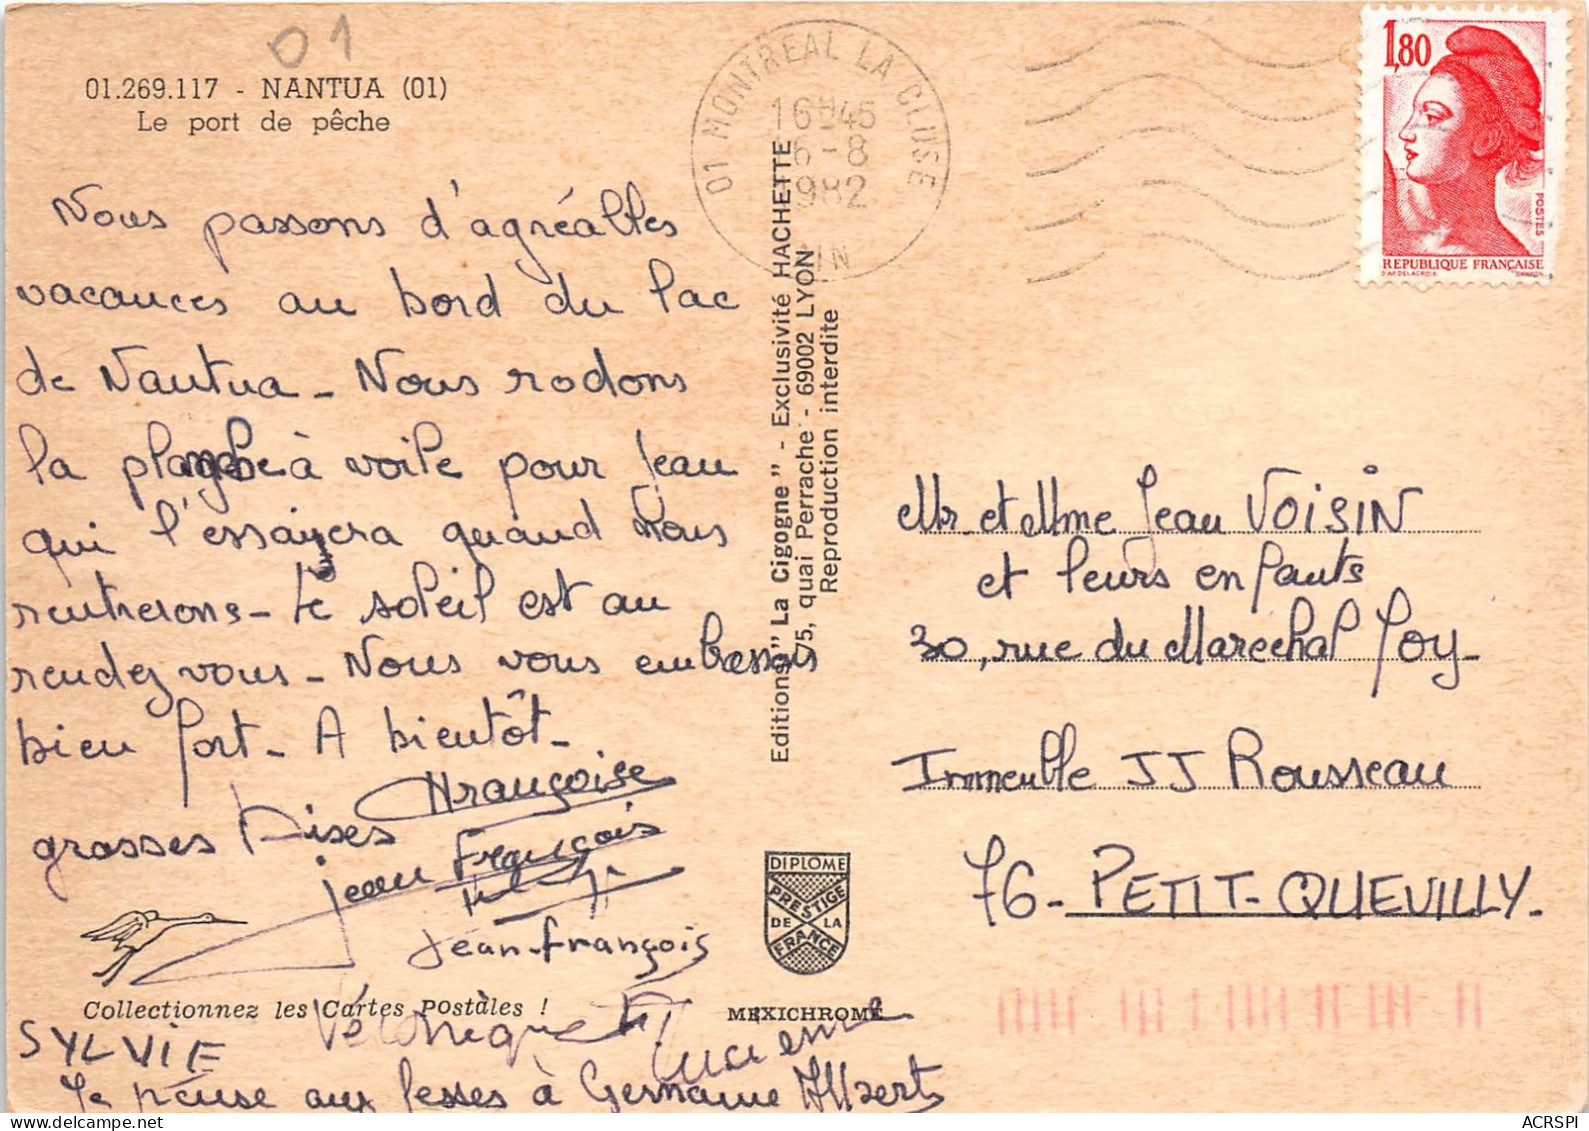 01
01.269.117 - NANTUA (01)
Le port de pêche
Nous passons d'agréables
vacances au bord du lac
de Nantua - Nous rodons
la planche à voile pour Jean
qui l'essayera quand nous
rentrerons - Le soleil est au
rendez vous - Nous vous embrassons
bien fort - A bientôt -
grosses bises Françoise
Jean François
Jean-François
Collectionnez les Cartes Postales !
SYLVIE Véronique
Lucienne
Je pense aux fesses à Germaine Albert
Editions "La Cigogne" - Exclusivité HACHETTE
75, quai Perrache - 69002 LYON
Reproduction interdite
DIPLOME
PRESTIGE
DE LA
FRANCE
MEXICHROME
01 MONTREAL LA CLUSE
16H45
6-8
1982
AIN
1,80
POSTES
REPUBLIQUE FRANÇAISE
D'AP. DELACROIX GANDON
Mr et Mme Jean VOISIN
et leurs enfants
30, rue du Marechal Foy -
Immeuble JJ Rousseau
76 - PETIT-QUEVILLY -
ACRSPI